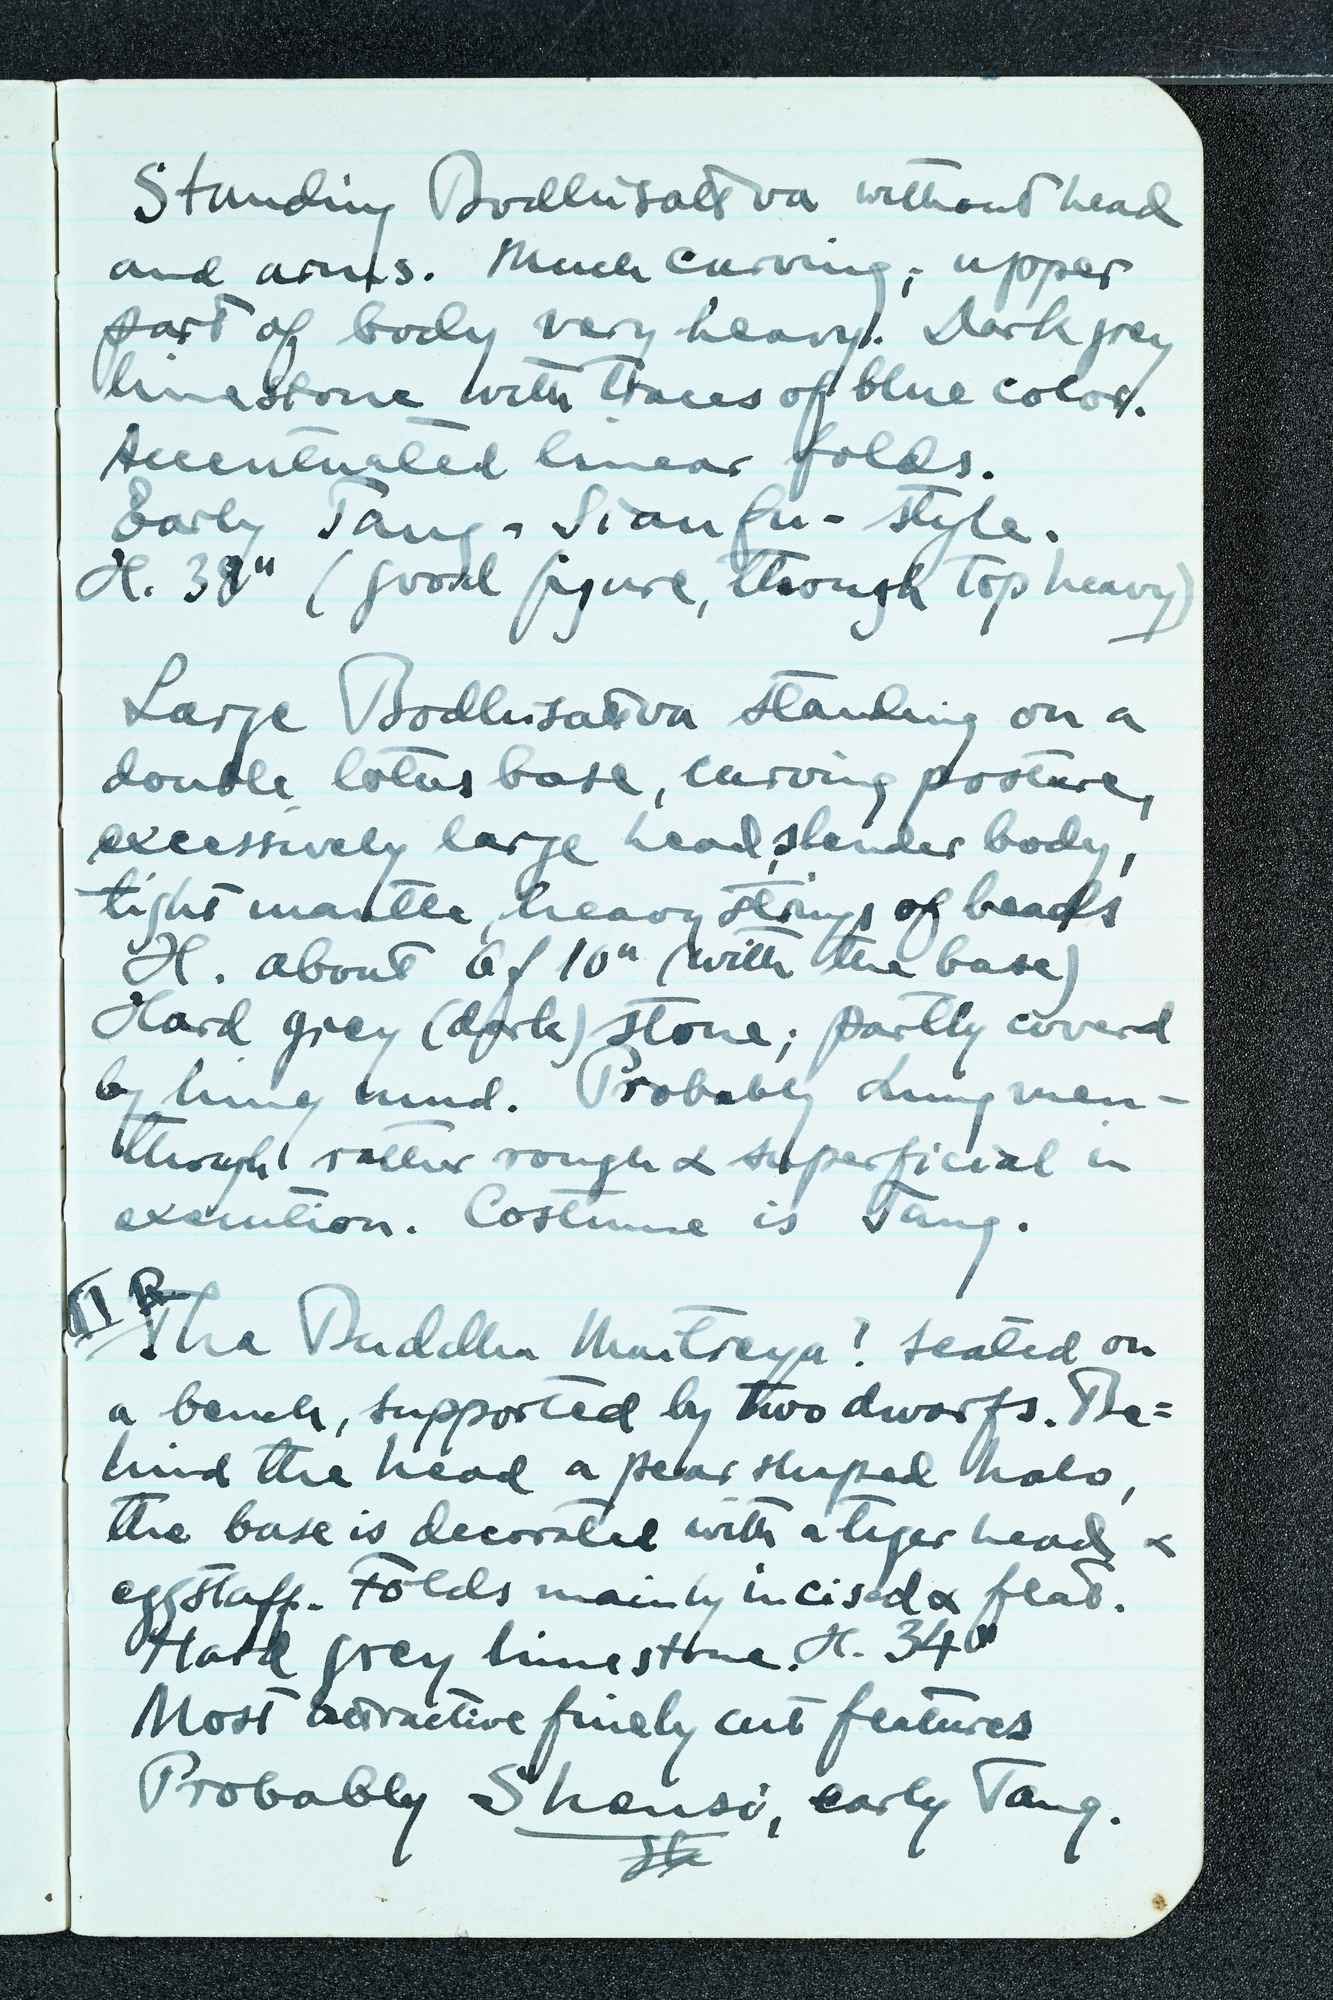 Standing Bodhisattva without head
and arms. Much curving; upper
part of body very heavy. Dark grey
limestone with traces of blue color.
Accentuated linear folds.
Early Tang - Sianfu - style.
H. 38" (good figure, though top heavy)
Large Bodhisattva standing on a
double lotus base, curving posture,
excessively large head, slender body,
tight mantle, heavy strings of beads
H. about 6 f 10" (with the base)
Hard grey (dark) stone; partly coverd
by limy mud. Probably Lungmen -
though rather rough & superficial in
execution. Costume is Tang.
The Buddha Maitreya? seated on
a bench, supported by two dwarfs. Be=
hind the head a pear shaped halo,
the base is decorated with a tiger head &
eggstaff. Folds mainly incised & flat.
Hard grey limestone. H. 34"
Most attractive finely cut features
Probably Shensi, early Tang.